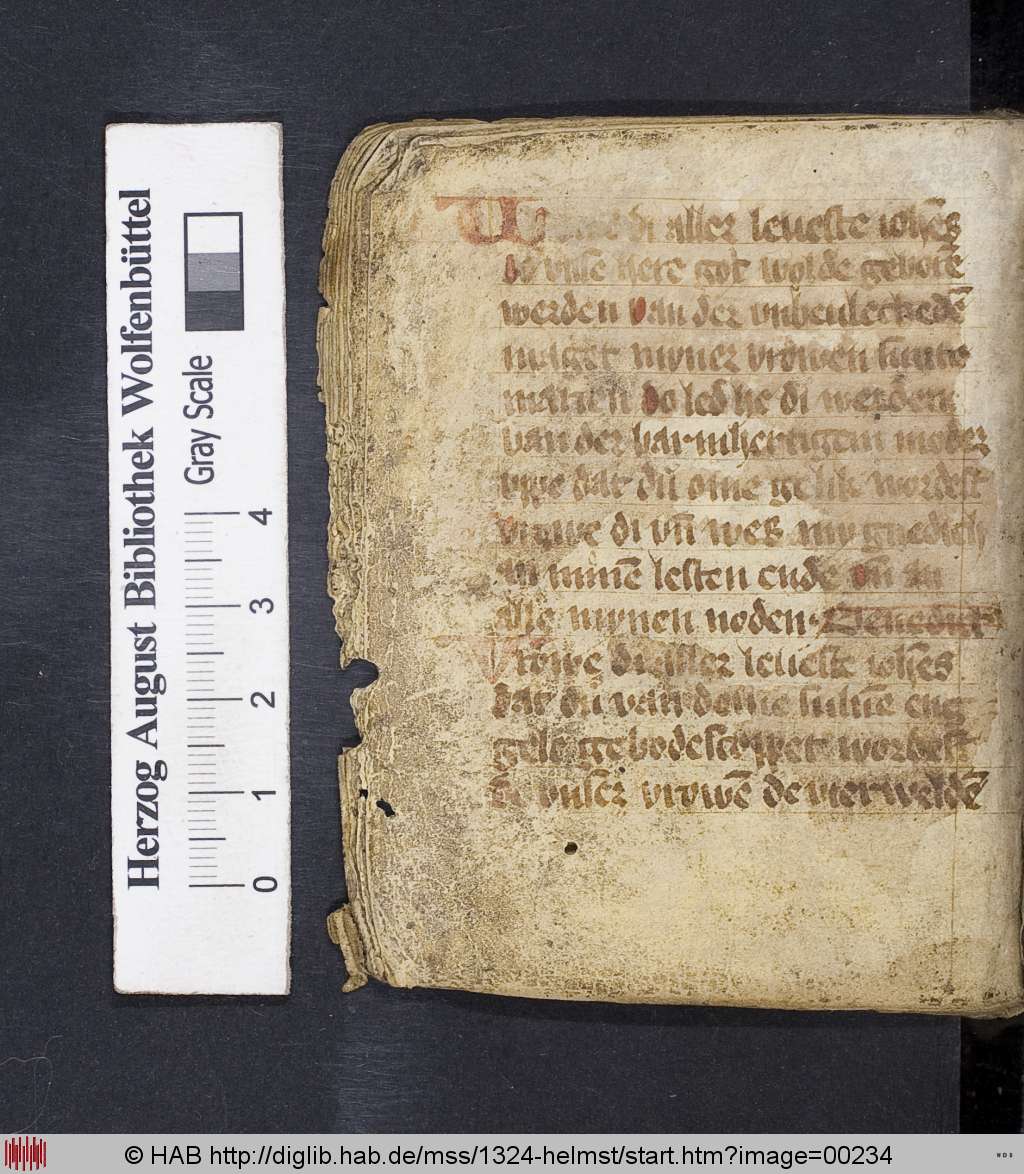 Herzog August Bibliothek Wolfenbüttel
Gray Scale
0 1 2 3 4
di aller leueste iohēs
vnse here got wolde gebore
werden van der vnbeuleckedē
maget myner vrowen sunte
marien do led he di werden
van der barmhertigen moder
vppe dat du ome gelik wordest
vrowe di vn̄ wes my gnedich
in minē lesten ende vn̄ in
alle mynen noden
vrowe di aller leueste iohēs
dat du van deme suluē eng
gele gebodescoppet wordest
de vnser vrowē
© HAB http://diglib.hab.de/mss/1324-helmst/start.htm?image=00234